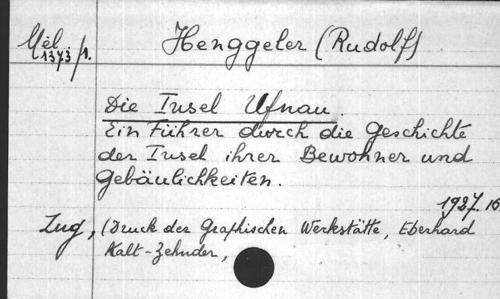 Mél. Henggeler (Rudolf)
1373. p.
Die Insel Ufnau
Ein Führer durch die Geschichte
der Insel ihrer Bewohner und
Gebäulichkeiten.
1937. 16
Zug, (Druck der Graphischen Werkstätte, Eberhard
Kalt-Zehnder,